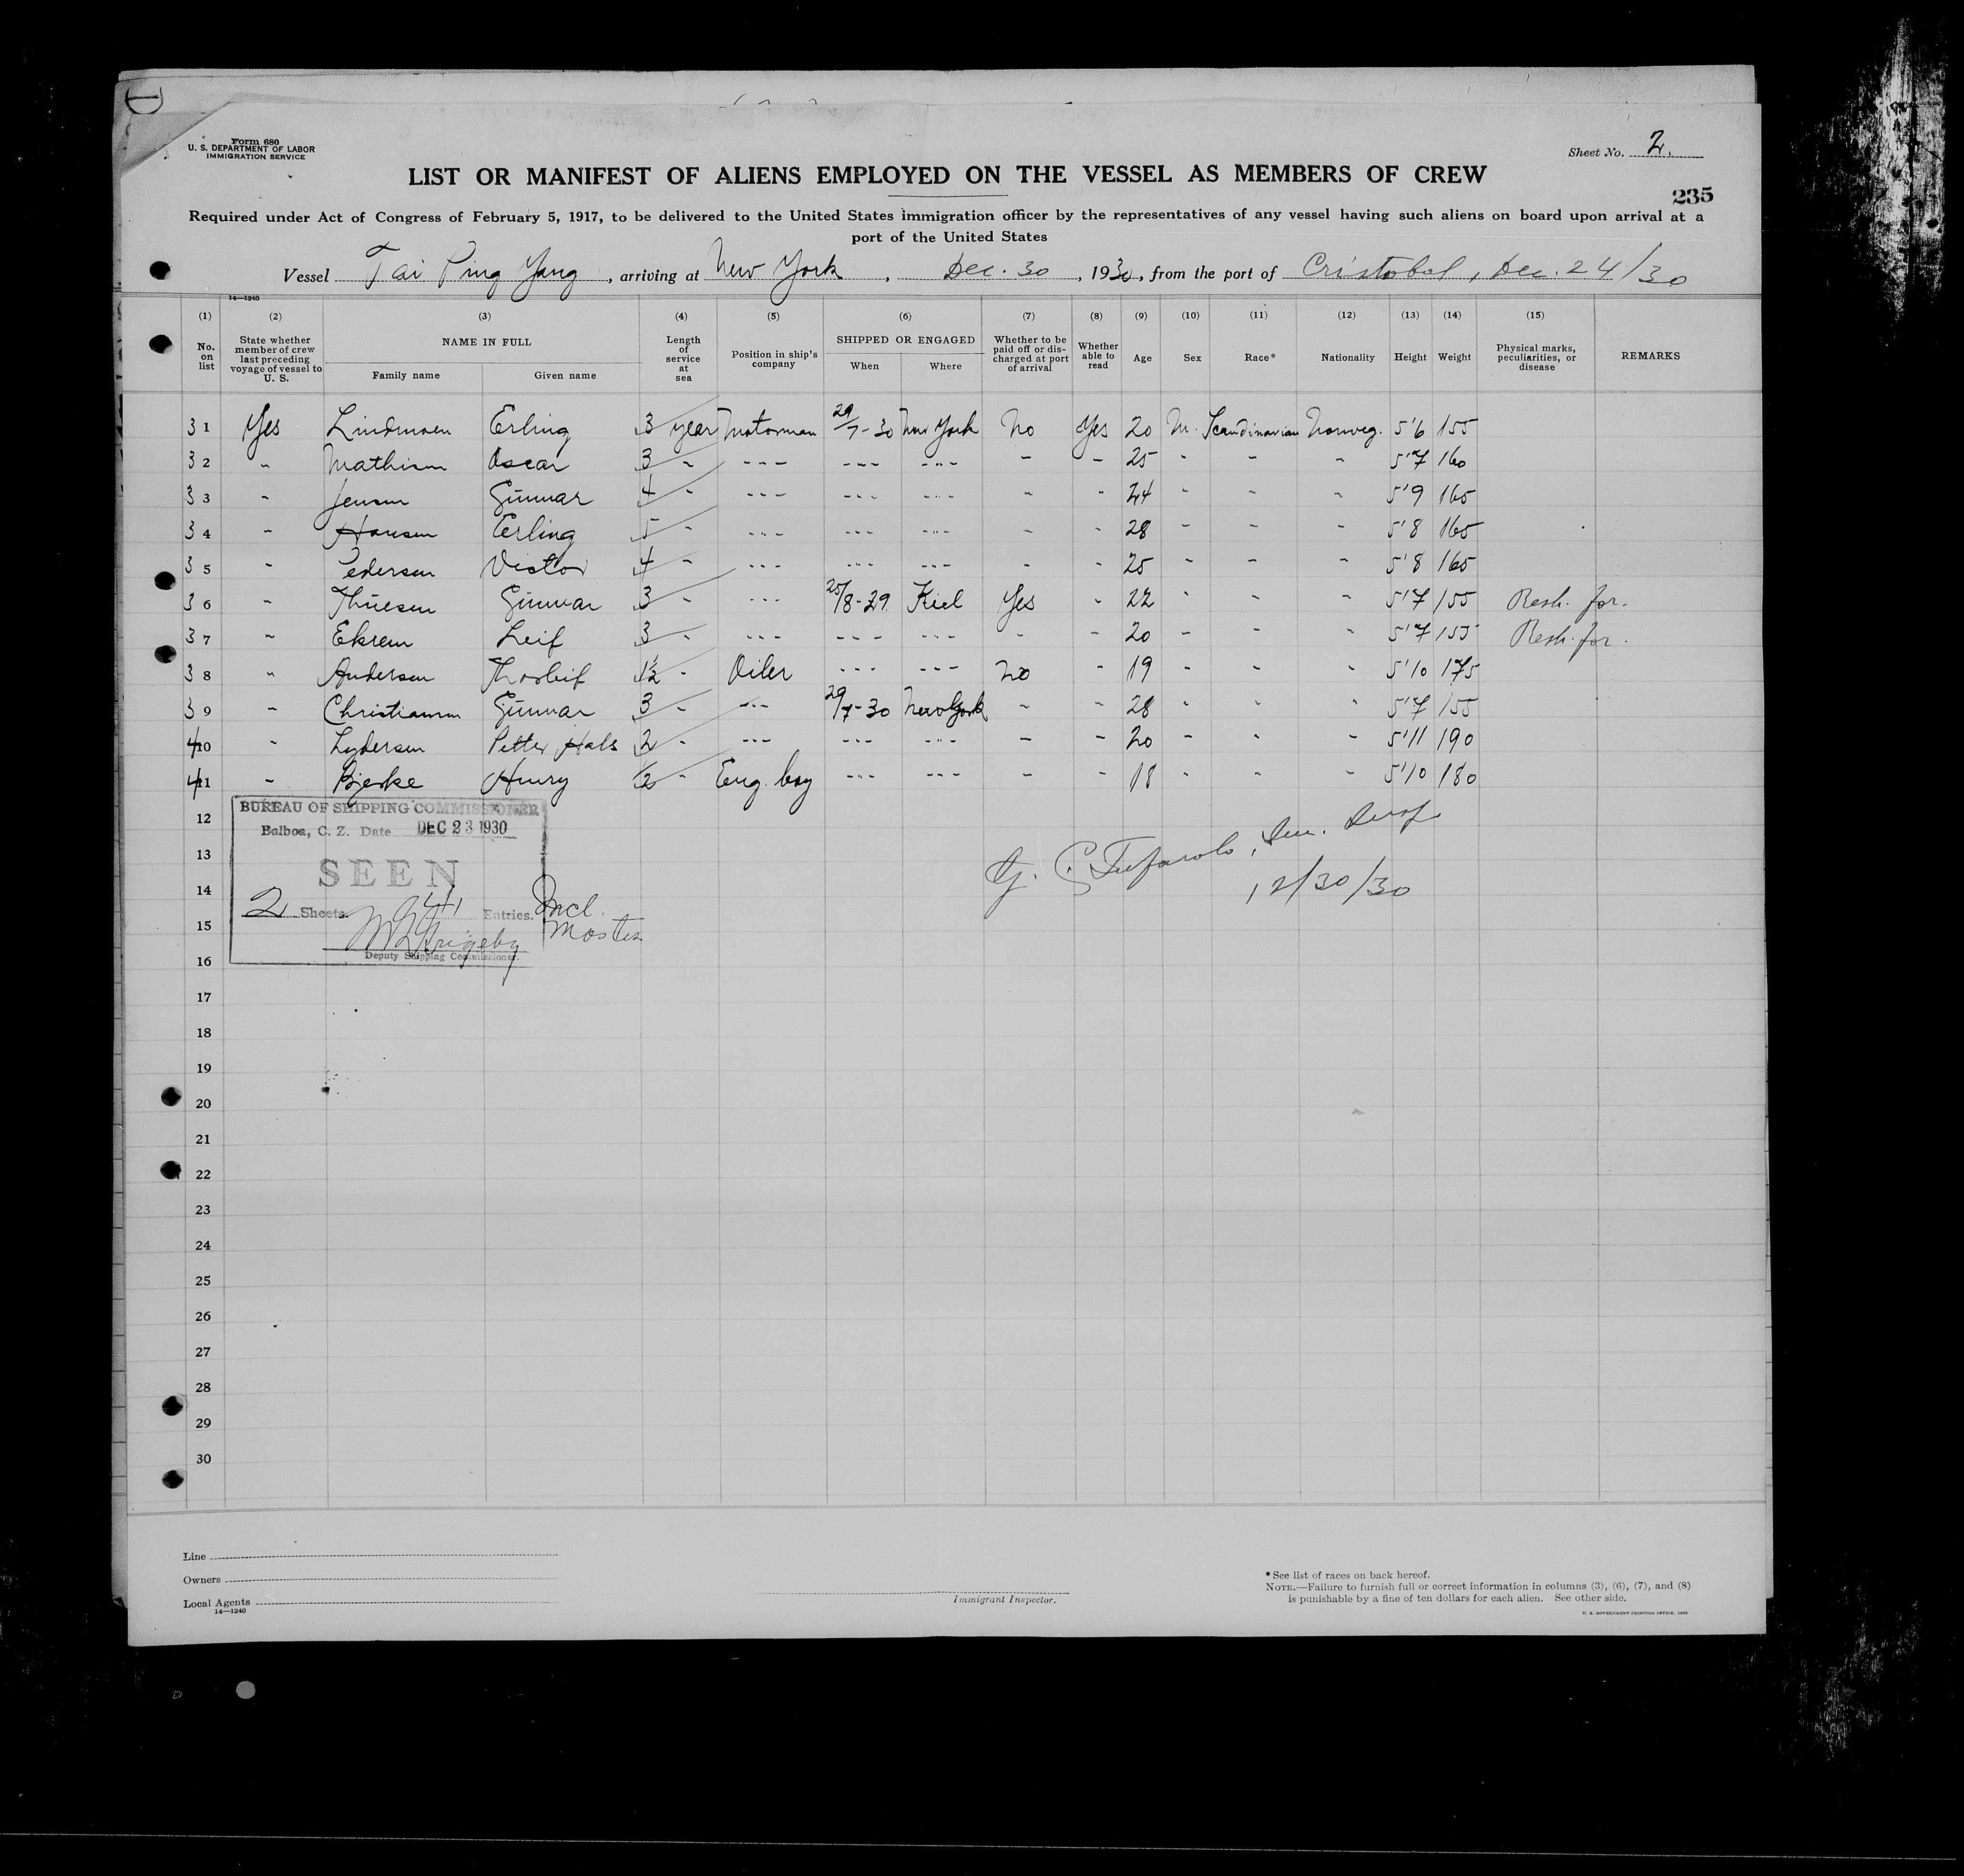 Form 680
U. S. DEPARTMENT OF LABOR
IMMIGRATION SERVICE
Sheet No. 2.
LIST OR MANIFEST OF ALIENS EMPLOYED ON THE VESSEL AS MEMBERS OF CREW
235
Required under Act of Congress of February 5, 1917, to be delivered to the United States immigration officer by the representatives of any vessel having such aliens on board upon arrival at a
port of the United States
Vessel Tai Ping Yang, arriving at New York, Dec. 30, 1930, from the port of Cristobal, Dec. 24/30
14—1240
(1) (2) (3) (4) (5) (6) (7) (8) (9) (10) (11) (12) (13) (14) (15)
No. on list State whether member of crew last preceding voyage of vessel to U. S. NAME IN FULL Family name Given name Length of service at sea Position in ship's company SHIPPED OR ENGAGED When Where Whether to be paid off or discharged at port of arrival Whether able to read Age Sex Race* Nationality Height Weight Physical marks, peculiarities, or disease REMARKS
31 Yes Lindmoen Erling 3 year Motorman 29/7-30 New York No Yes 20 M. Scandinavian Norweg. 5'6 155
32 " Mathisen Oscar 3 " --- --- --- - - 25 - - - 5'7 160
33 " Jensen Gunnar 4 " --- --- --- - - 24 - - - 5'9 165
34 " Hansen Erling 5 " --- --- --- - - 28 - - - 5'8 165
35 " Pedersen Victor 4 " --- --- --- - - 25 - - - 5'8 165
36 " Thuesen Gunnar 3 " --- 25/8-29 Kiel Yes - 22 - - - 5'7 155 Resh. for.
37 " Ekrem Leif 3 " --- --- --- - - 20 - - - 5'7 155 Resh. for.
38 " Andersen Thorleif 1½ " Oiler --- --- No - 19 - - - 5'10 175
39 " Christiansen Gunnar 3 " --- 29/7-30 New York - - 28 - - - 5'7 155
40 " Lydersen Petter Hals 2 " --- --- --- - - 20 - - - 5'11 190
41 " Bjerke Henry ½ " Eng. boy --- --- - - 18 - - - 5'10 180
12
13
14
15
16
17
18
19
20
21
22
23
24
25
26
27
28
29
30
BUREAU OF SHIPPING COMMISSIONER
Balboa, C. Z. Date DEC 23 1930
SEEN
2 Sheets. 41 Entries. Incl. Master
Deputy Shipping Commissioner.
12/30/30
Line
Owners
Local Agents
14—1240
Immigrant Inspector.
*See list of races on back hereof.
NOTE.—Failure to furnish full or correct information in columns (3), (6), (7), and (8)
is punishable by a fine of ten dollars for each alien. See other side.